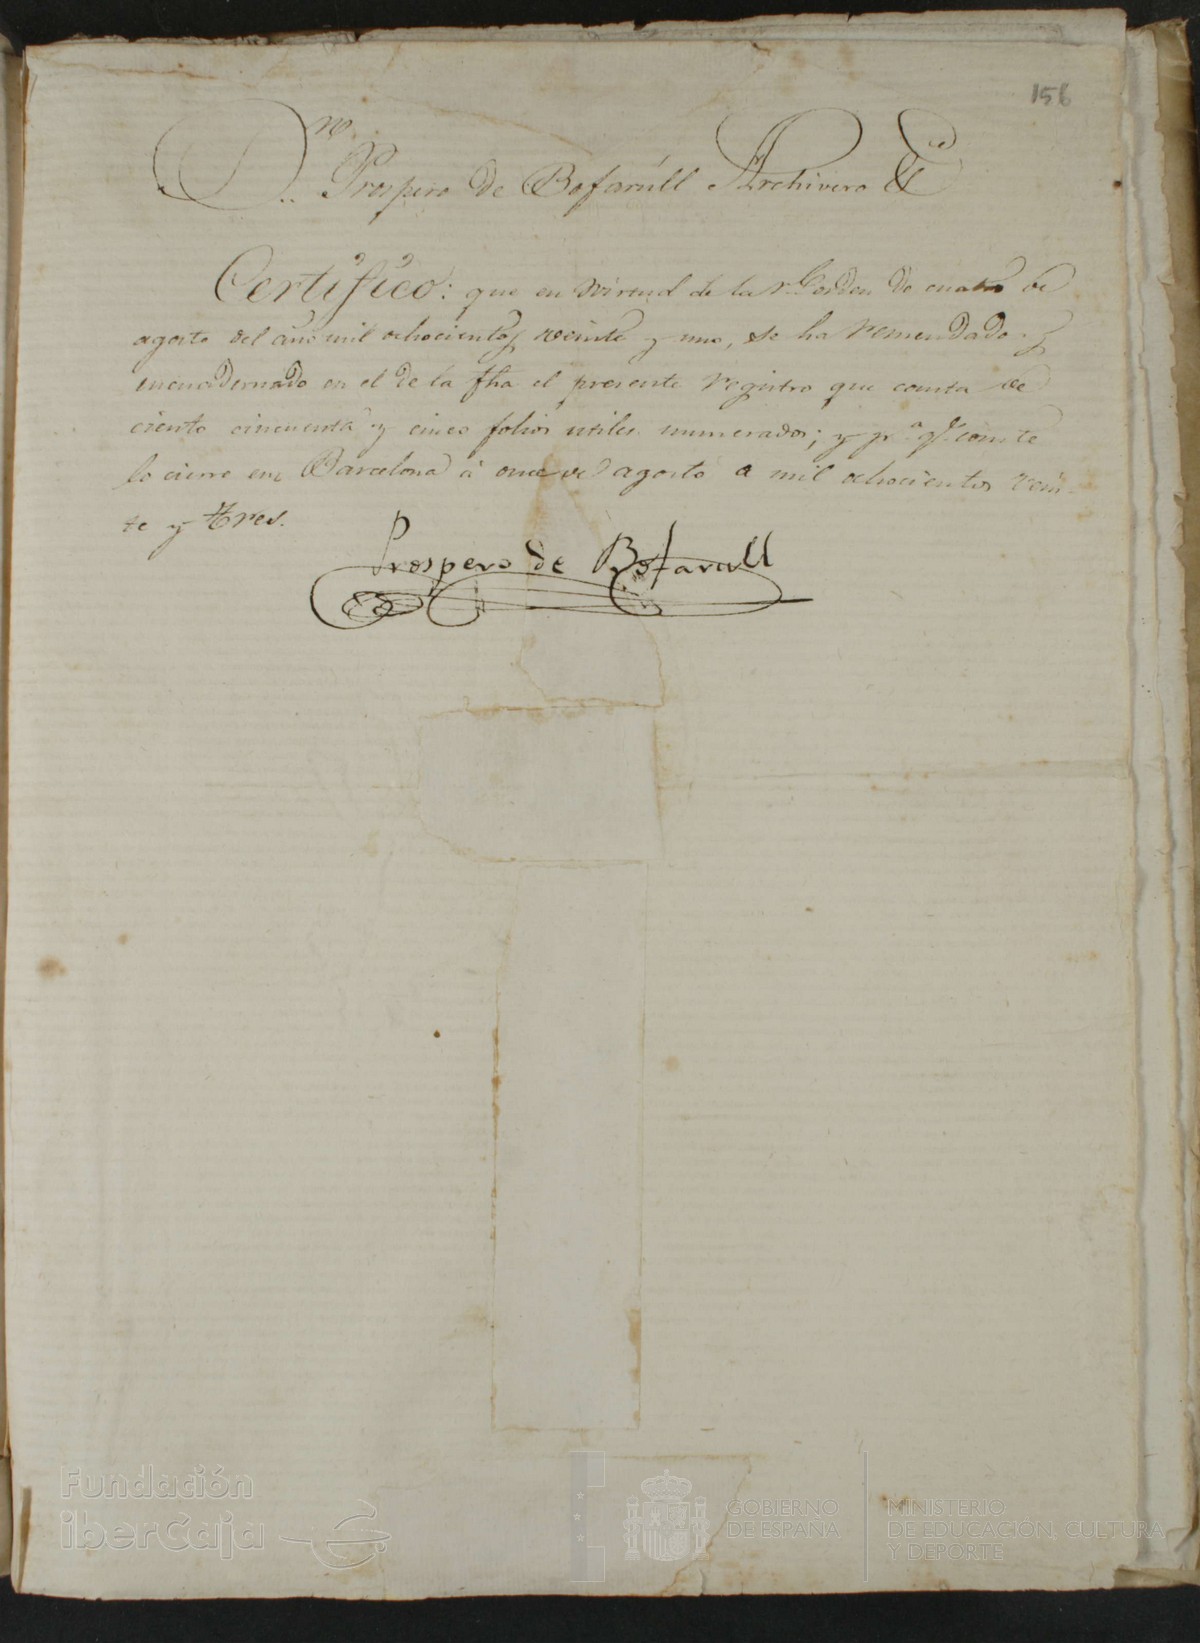 156
D.n Prospero de Bofarull Archivero &c.
Certifico: que en virtud de la r.l orden de cuatro de
agosto del año mil ochocientos veinte y uno, se ha remendado y
encuadernado en el de la fha el presente registro que consta de
ciento cincuenta y cinco folios utiles numerados; y p.a q.e conste
lo cierro en Barcelona á once de agosto de mil ochocientos vein-
te y tres.
Prospero de Bofarull
Fundación
iberCaja
GOBIERNO
DE ESPAÑA
MINISTERIO
DE EDUCACIÓN, CULTURA
Y DEPORTE